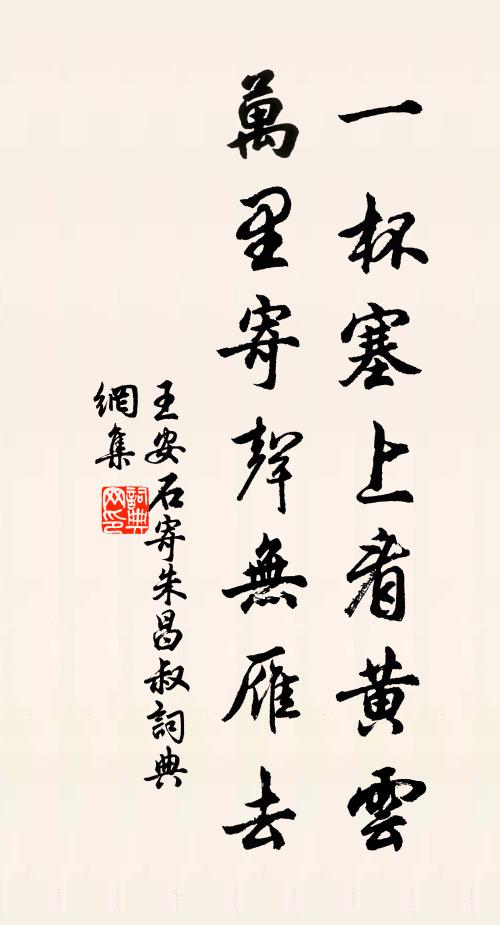 一杯塞上看黃雲
萬里寄聲無雁去
王安石寄朱昌叔詞典
網集
詞典
网印